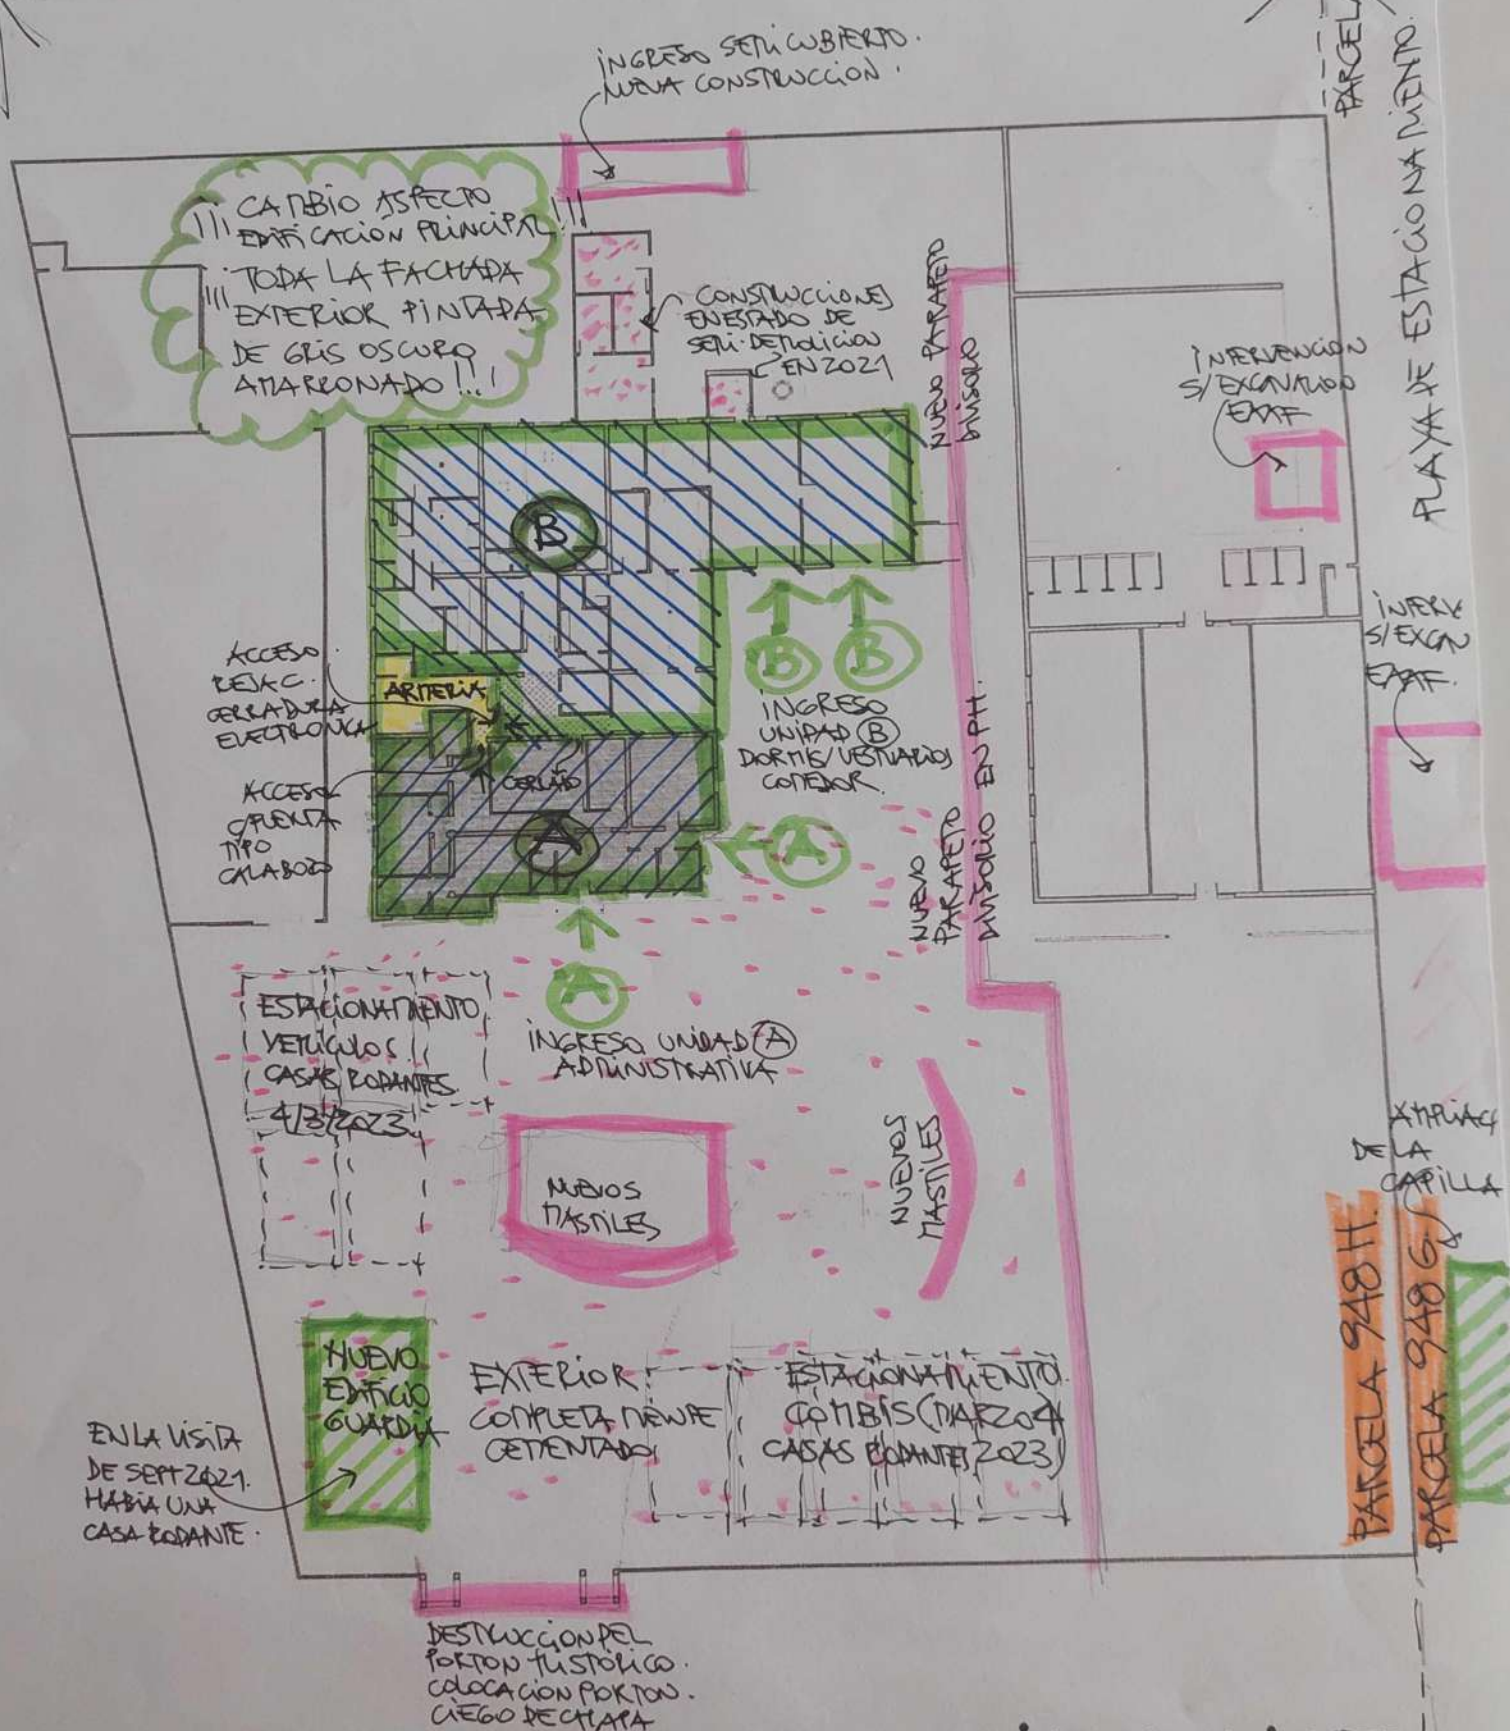 INGRESO SEMICUBIERTO.
NUEVA CONSTRUCCION.
PARCELA
PLAYA DE ESTACIONAMIENTO.
¡¡¡ CAMBIO ASPECTO
EDIFICACIÓN PRINCIPAL!!!
¡¡¡ TODA LA FACHADA
EXTERIOR PINTADA
DE GRIS OSCURO
AMARRONADO!!!
CONSTRUCCIONES
EN ESTADO DE
SEMI-DEMOLICION
EN 2021
NUEVO PARAPETO
DIVISORIO
INTERVENCION
S/EXCAVACION
EAAF
B
INTERV
S/EXCAV
EAAF.
ACCESO
REJA C.
CERRADURA
ELECTRONICA
ARMERIA
B
B
INGRESO
UNIDAD B
DORMIS/VESTUARIOS
COMEDOR.
ACCESO
C/PUERTA
TIPO
CALABOZO
A
A
NUEVO
PARAPETO
DIVISORIO EN PH.
A
ESTACIONAMIENTO
VEHICULOS
CASAS RODANTES.
4/3/2023
INGRESO UNIDAD A
ADMINISTRATIVA
NUEVOS
MASTILES
NUEVOS
MASTILES
AMPLIAC
DE LA
CAPILLA
PARCELA 948H.
PARCELA 948G
NUEVO
EDIFICIO
GUARDIA
EXTERIOR
COMPLETAMENTE
CEMENTADO
ESTACIONAMIENTO
COMBIS (MARZO 4
CASAS RODANTES 2023)
EN LA VISITA
DE SEPT 2021.
HABIA UNA
CASA RODANTE.
DESTRUCCION DEL
PORTON HISTÓRICO.
COLOCACION PORTON.
CIEGO DE CHAPA